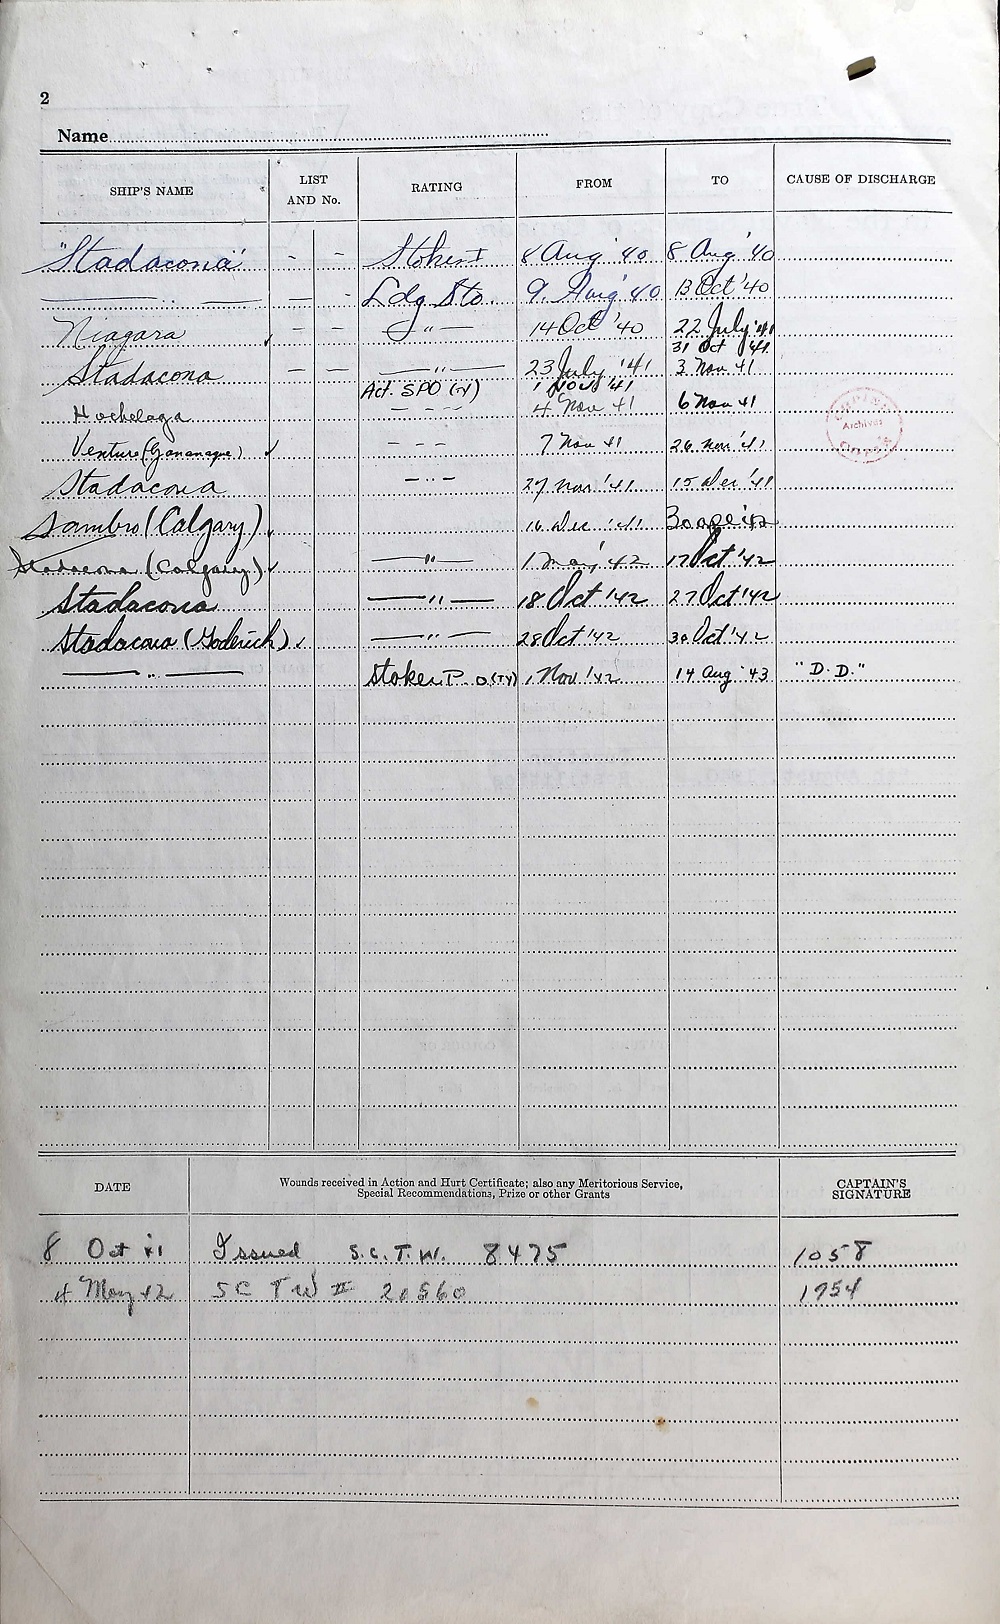 2
Name
SHIP'S NAME LIST AND No. RATING FROM TO CAUSE OF DISCHARGE
"Stadacona" - - Stoker I 8 Aug '40 8 Aug '40
— " — — - Ldg Sto. 9 Aug '40 13 Oct '40
Niagara ✓ - - " — 14 Oct '40 22 July '41
31 Oct '41
Stadacona — — — " — 23 July '41 3 Nov 41
Act. SPO (TY) 1 Nov '41
Hochelaga - - - - 4 Nov 41 6 Nov 41
Venture (Gananaque) ✓ - - - 7 Nov 41 26 Nov '41
Stadacona - " - 27 Nov '41 15 Dec '41
Sambro (Calgary) ✓ 16 Dec '41 30 '42
Stadacona (Calgary) ✓ — " — 1 May '42 17 Oct '42
Stadacona — " — 18 Oct '42 27 Oct '42
Stadacona (Goderich) ✓ — " — 28 Oct '42 30 Oct '42
— " — Stoker P.O (TY) 1 Nov '42 14 Aug '43 "D.D."
Archives
DATE Wounds received in Action and Hurt Certificate; also any Meritorious Service, CAPTAIN'S
Special Recommendations, Prize or other Grants SIGNATURE
8 Oct 41 Issued S.C.T.W. 8475 1058
4 May 42 SC TW II 20560 1954